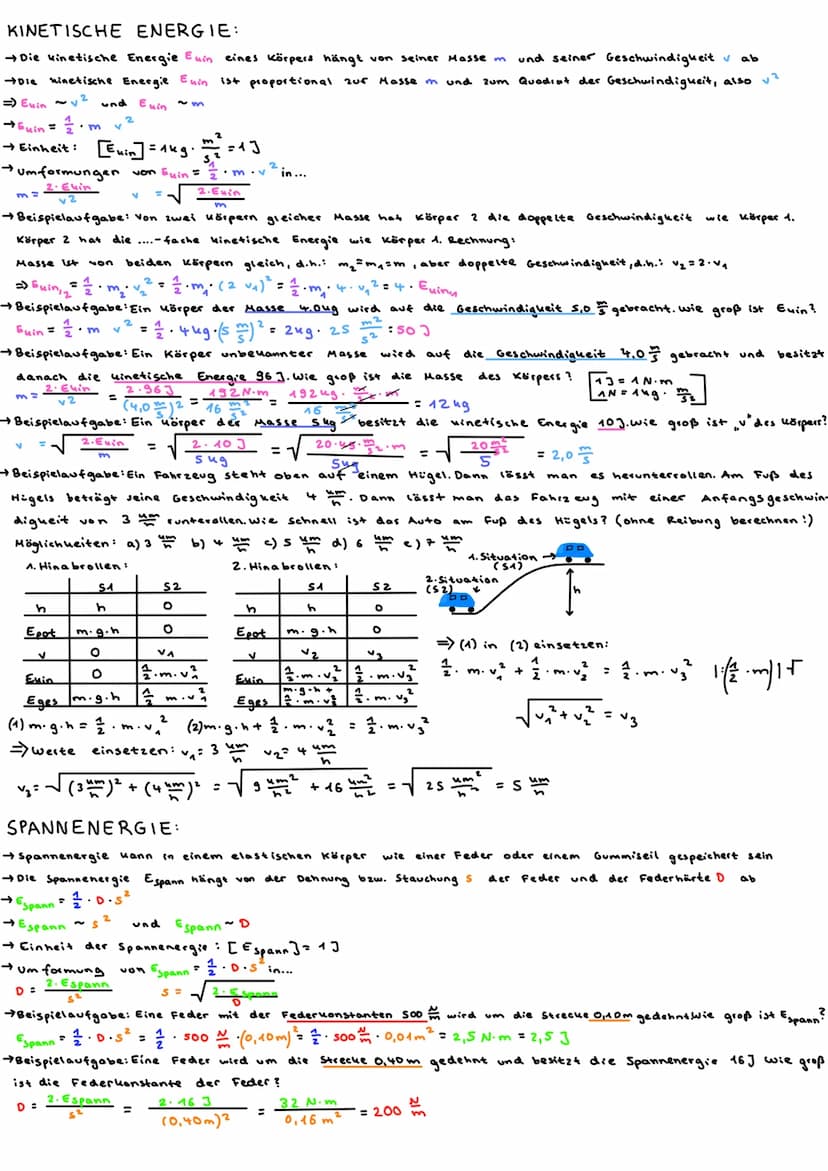 KINETISCHE ENERGIE:
→ Die kinetische Energie Ekin eines Körpers hängt von seiner Masse m und seiner Geschwindigkeit v ab
→ Die kinetische Energie Ekin ist proportional zur Masse m und zum Quadrat der Geschwindigkeit, also v²
⇒ Ekin ~ v² und Ekin ~ m
→ Ekin = 1/2 · m v²
→ Einheit: [Ekin] = 1kg · m²/s² = 1J
→ Umformungen von Ekin = 1/2 · m · v² in...
m = 2·Ekin/v2 v = √(2·Ekin/m)
→ Beispielaufgabe: Von zwei Körpern gleicher Masse hat Körper 2 die doppelte Geschwindigkeit wie Körper 1.
Körper 2 hat die ....-fache kinetische Energie wie Körper 1. Rechnung:
Masse ist von beiden Körpern gleich, d.h.: m₂=m₁=m, aber doppelte Geschwindigkeit, d.h.: v₂=2·v₁
⇒ Ekin,₂ = 1/2 · m₂ · v₂² = 1/2 · m₁ · (2 v₁)² = 1/2 · m₁ · 4 · v₁² = 4 · Ekin,₁
→ Beispielaufgabe: Ein Körper der Masse 4,0kg wird auf die Geschwindigkeit 5,0 m/s gebracht. Wie groß ist Ekin?
Ekin = 1/2 · m v² = 1/2 · 4kg · (5 m/s)² = 2kg · 25 m²/s² = 50 J
→ Beispielaufgabe: Ein Körper unbekannter Masse wird auf die Geschwindigkeit 4,0 m/s gebracht und besitzt
danach die kinetische Energie 96J. Wie groß ist die Masse des Körpers? [1J = 1N·m
1N = 1kg · m/s²]
m = 2·Ekin/v2 = 2·96J/(4,0 m/s)² = 192N·m/16 m²/s² = 192kg · m/s² · m/16 m²/s² = 12kg
→ Beispielaufgabe: Ein Körper der Masse 5kg besitzt die kinetische Energie 10J. Wie groß ist „v" des Körpers?
v = √(2·Ekin/m) = √(2·10J/5kg) = √(20·kg·m/s²·m/5kg) = √(20 m²/s²/5) = 2,0 m/s
→ Beispielaufgabe: Ein Fahrzeug steht oben auf einem Hügel. Dann lässt man es herunterrollen. Am Fuß des
Hügels beträgt seine Geschwindigkeit 4 km/h. Dann lässt man das Fahrzeug mit einer Anfangsgeschwin-
digkeit von 3 km/h runterollen. Wie schnell ist das Auto am Fuß des Hügels? (ohne Reibung berechnen!)
Möglichkeiten: a) 3 km/h b) 4 km/h c) 5 km/h d) 6 km/h e) 7 km/h
1. Situation → (S1)
2. Situation (S2)
h
1. Hinabrollen:
S1 S2
h h 0
Epot m·g·h 0
v 0 v₁
Ekin 0 1/2·m·v₁²
Eges m·g·h 1/2 m·v₁²
2. Hinabrollen:
S1 S2
h h 0
Epot m·g·h 0
v v₂ v₃
Ekin 1/2·m·v₂² 1/2·m·v₃²
Eges m·g·h + 1/2·m·v₂² 1/2·m·v₃²
⇒ (1) in (2) einsetzen:
1/2 · m·v₁² + 1/2 · m·v₂² = 1/2 · m·v₃² |:(1/2 · m)|√
√(v₁² + v₂²) = v₃
(1) m·g·h = 1/2 · m·v₁² (2) m·g·h + 1/2 · m·v₂² = 1/2 · m·v₃²
⇒ Werte einsetzen: v₁ = 3 km/h v₂ = 4 km/h
v₃ = √((3 km/h)² + (4 km/h)²) = √(9 km²/h² + 16 km²/h²) = √(25 km²/h²) = 5 km/h
SPANNENERGIE:
→ Spannenergie kann in einem elastischen Körper wie einer Feder oder einem Gummiseil gespeichert sein
→ Die Spannenergie Espann hängt von der Dehnung bzw. Stauchung s der Feder und der Federhärte D ab
→ Espann = 1/2 · D · s²
→ Espann ~ s² und Espann ~ D
→ Einheit der Spannenergie: [Espann] = 1J
→ Umformung von Espann = 1/2 · D · s² in...
D = 2·Espann/s² s = √(2·Espann/D)
→ Beispielaufgabe: Eine Feder mit der Federkonstanten 500 N/m wird um die Strecke 0,10m gedehnt. Wie groß ist Espann?
Espann = 1/2 · D · s² = 1/2 · 500 N/m · (0,10m)² = 1/2 · 500 N/m · 0,01m² = 2,5 N·m = 2,5 J
→ Beispielaufgabe: Eine Feder wird um die Strecke 0,40m gedehnt und besitzt die Spannenergie 16J Wie groß
ist die Federkonstante der Feder?
D = 2·Espann/s² = 2·16 J/(0,40m)² = 32 N·m/0,16 m² = 200 N/m